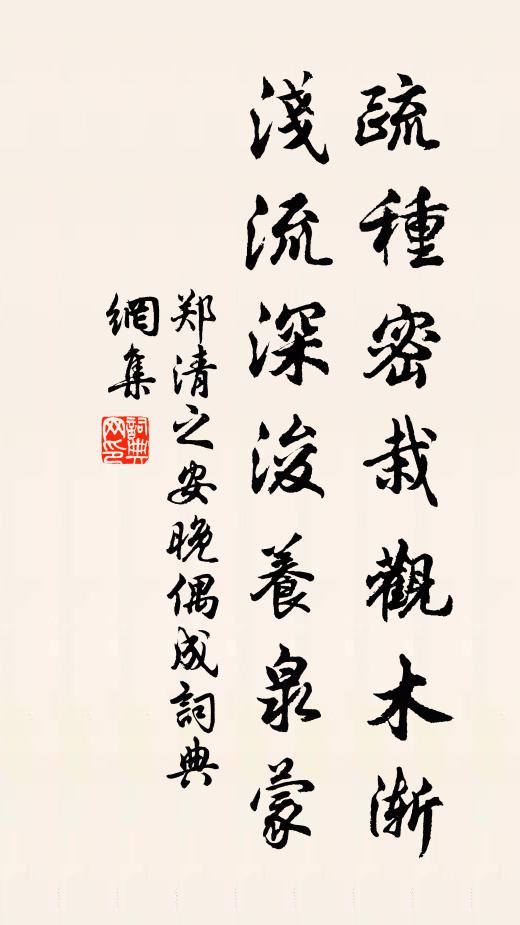 疏種密栽觀木漸
淺流深浚養泉蒙
郑清之安晚偶成詞典
網集
詞典
网印